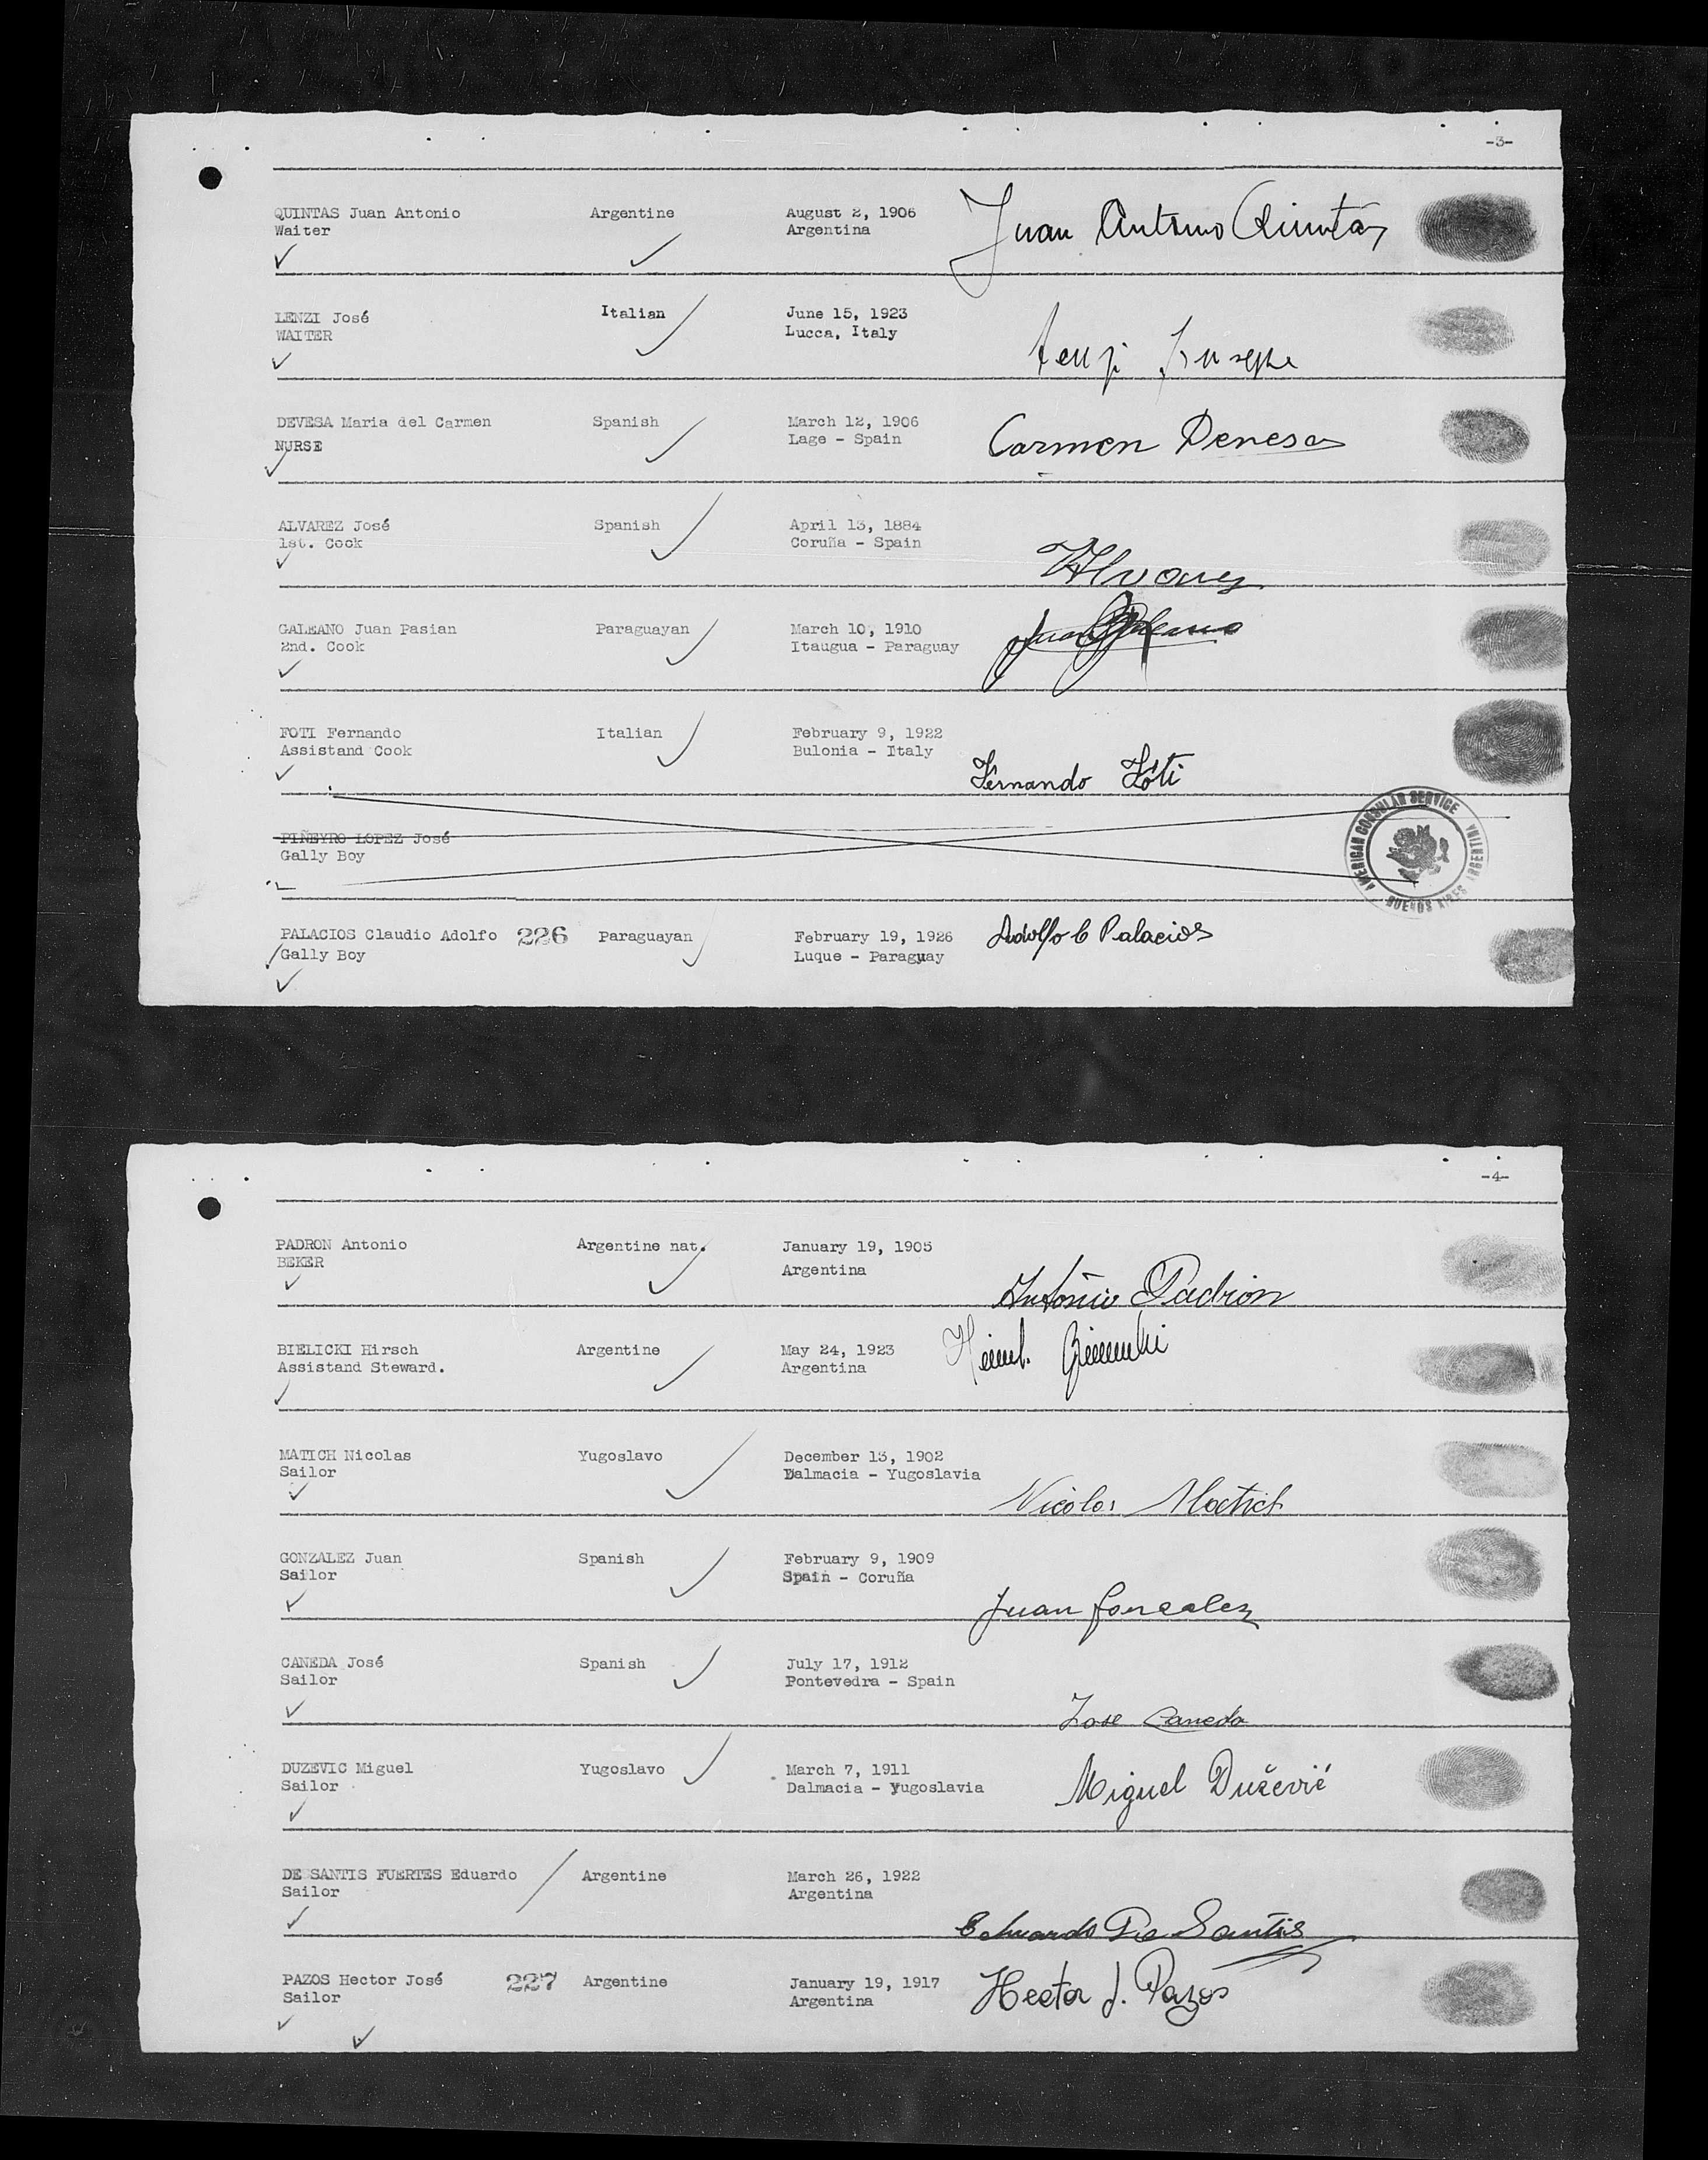 -3-
QUINTAS Juan Antonio Argentine August 2, 1906 Juan Antonio Quintas
Waiter Argentina
LENZI José Italian June 15, 1923
WAITER Lucca, Italy
Lenzi Giuseppe
DEVESA Maria del Carmen Spanish March 12, 1906
NURSE Lage - Spain Carmen Devesa
ALVAREZ José Spanish April 13, 1884
1st. Cook Coruña - Spain
Alvarez
GALEANO Juan Pasian Paraguayan March 10, 1910 Juan Galeano
2nd. Cook Itaugua - Paraguay
FOTI Fernando Italian February 9, 1922
Assistand Cook Bulonia - Italy
Fernando Fóti
PIÑEYRO LOPEZ José
Gally Boy
AMERICAN CONSULAR SERVICE
BUENOS AIRES ARGENTINA
PALACIOS Claudio Adolfo 226 Paraguayan February 19, 1926 Adolfo C Palacios
Gally Boy Luque - Paraguay
-4-
PADRON Antonio Argentine nat. January 19, 1905
BEKER Argentina
Antonio Padron
BIELICKI Hirsch Argentine May 24, 1923
Assistand Steward. Argentina
MATICH Nicolas Yugoslavo December 13, 1902
Sailor Dalmacia - Yugoslavia
Nicolas Matich
GONZALEZ Juan Spanish February 9, 1909
Sailor Spain - Coruña
Juan Gonzalez
CANEDA José Spanish July 17, 1912
Sailor Pontevedra - Spain
Jose Caneda
DUZEVIC Miguel Yugoslavo March 7, 1911
Sailor Dalmacia - Yugoslavia Miguel Dužević
DE SANTIS FUERTES Eduardo Argentine March 26, 1922
Sailor Argentina
Eduardo De Santis
PAZOS Hector José 227 Argentine January 19, 1917 Hector J. Pazos
Sailor Argentina